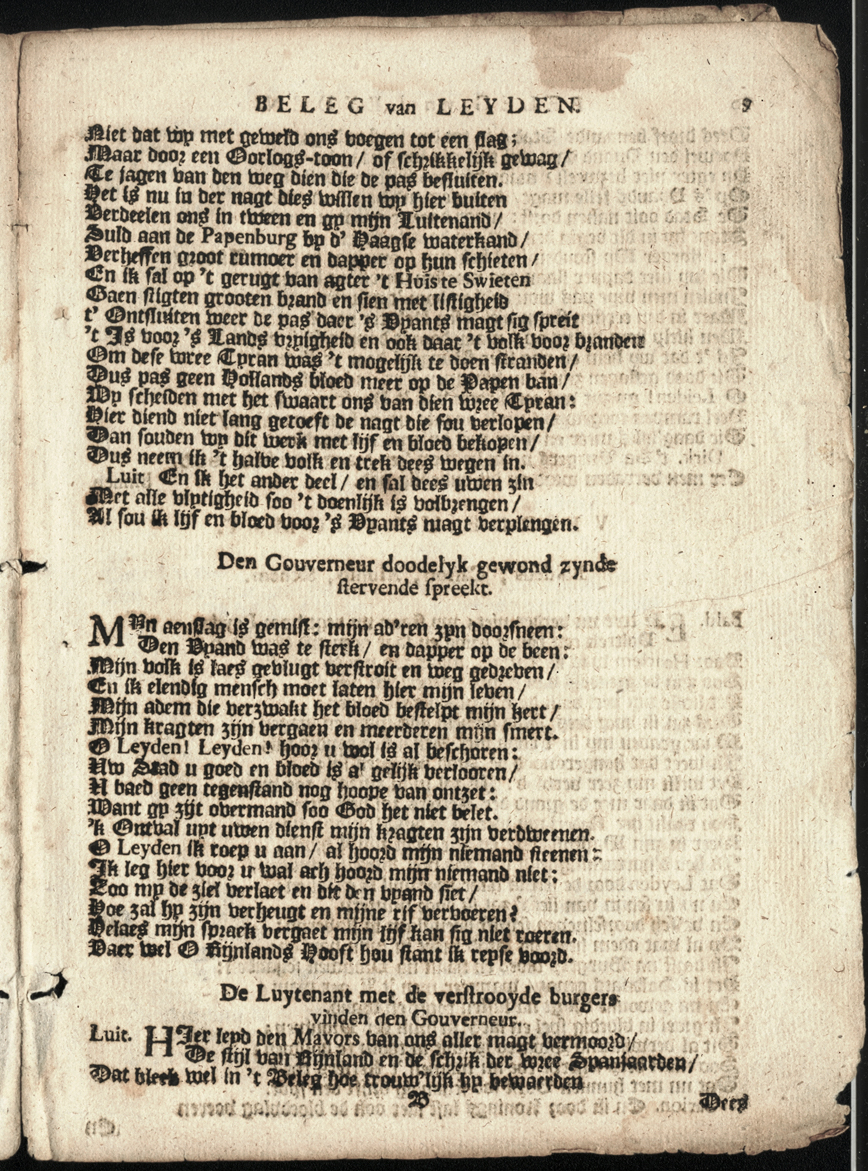 BELEG van LEYDEN. 9
Niet dat wy met geweld ons voegen tot een slag;
Maar door een Oorlogs-toon / of schrikkelijk gewag /
Te jagen van den weg dien die de pas besluiten.
Het is nu in der nagt dies willen wy hier buiten
Verdeelen ons in tween en gy mijn Luitenand /
Suld aan de Papenburg by d' Haagse waterkand /
Verheffen groot rumoer en dapper op hun schieten /
En ik sal op 't gerugt van agter 't Huis te Swieten
Gaen stigten grooten brand en sien met listigheid
t' Ontsluiten weer de pas daer 's Vyants magt sig spreit
't Is voor 's Lands vryigheid en ook daar 't volk voor branden
Om dese wree Tyran was 't mogelijk te doen stranden /
Dus pas geen Hollands bloed meer op de Papen ban /
Wy scheiden met het swaart ons van dien wree Tyran:
Hier diend niet lang getoeft de nagt die sou verlopen /
Dan souden wy dit werk met lijf en bloed bekopen /
Dus neem ik 't halve volk en trek dees wegen in.
Luit. En ik het ander deel / en sal dees uwen zin
Met alle vlytigheid soo 't doenlijk is volbrengen /
Al sou ik lijf en bloed voor 's Vyants magt verplengen.
Den Gouverneur doodelyk gewond zynde
stervende spreekt.
MYn aenslag is gemist: mijn ad'ren zyn doorsneen:
Den Vyand was te sterk / en dapper op de been:
Mijn volk is laes gevlugt verstroit en weg gedreven /
En ik elendig mensch moet laten hier mijn leven /
Mijn adem die verzwakt het bloed bestelpt mijn hert /
Mijn kragten zijn vergaen en meerderen mijn smert.
O Leyden! Leyden! hoor u wol is al beschoren:
Uw Stad u goed en bloed is al gelijk verlooren /
U baed geen tegenstand nog hoope van ontzet:
Want gy zijt overmand soo God het niet belet.
'k Ontval uyt uwen dienst mijn kragten zijn verdweenen.
O Leyden ik roep u aan / al hoord mijn niemand steenen:
Ik leg hier voor u wal ach hoord mijn niemand niet:
Soo my de ziel verlaet en dit den vyand siet /
Hoe zal hy zijn verheugt en mijne rif vervoeren?
Helaes mijn spraek vergaet mijn lijf kan sig niet roeren.
Daer wel O Rijnlands Hooft hou stant ik reyse voord.
De Luytenant met de verstrooyde burgers
vinden den Gouverneur.
Luit. HIer leyd den Mavors van ons aller magt vermoord /
De stijl van Rijnland en de schrik der wree Spanjaarden /
Dat bleek wel in 't Beleg hoe trouw'lijk hy bewaerden
B Dees